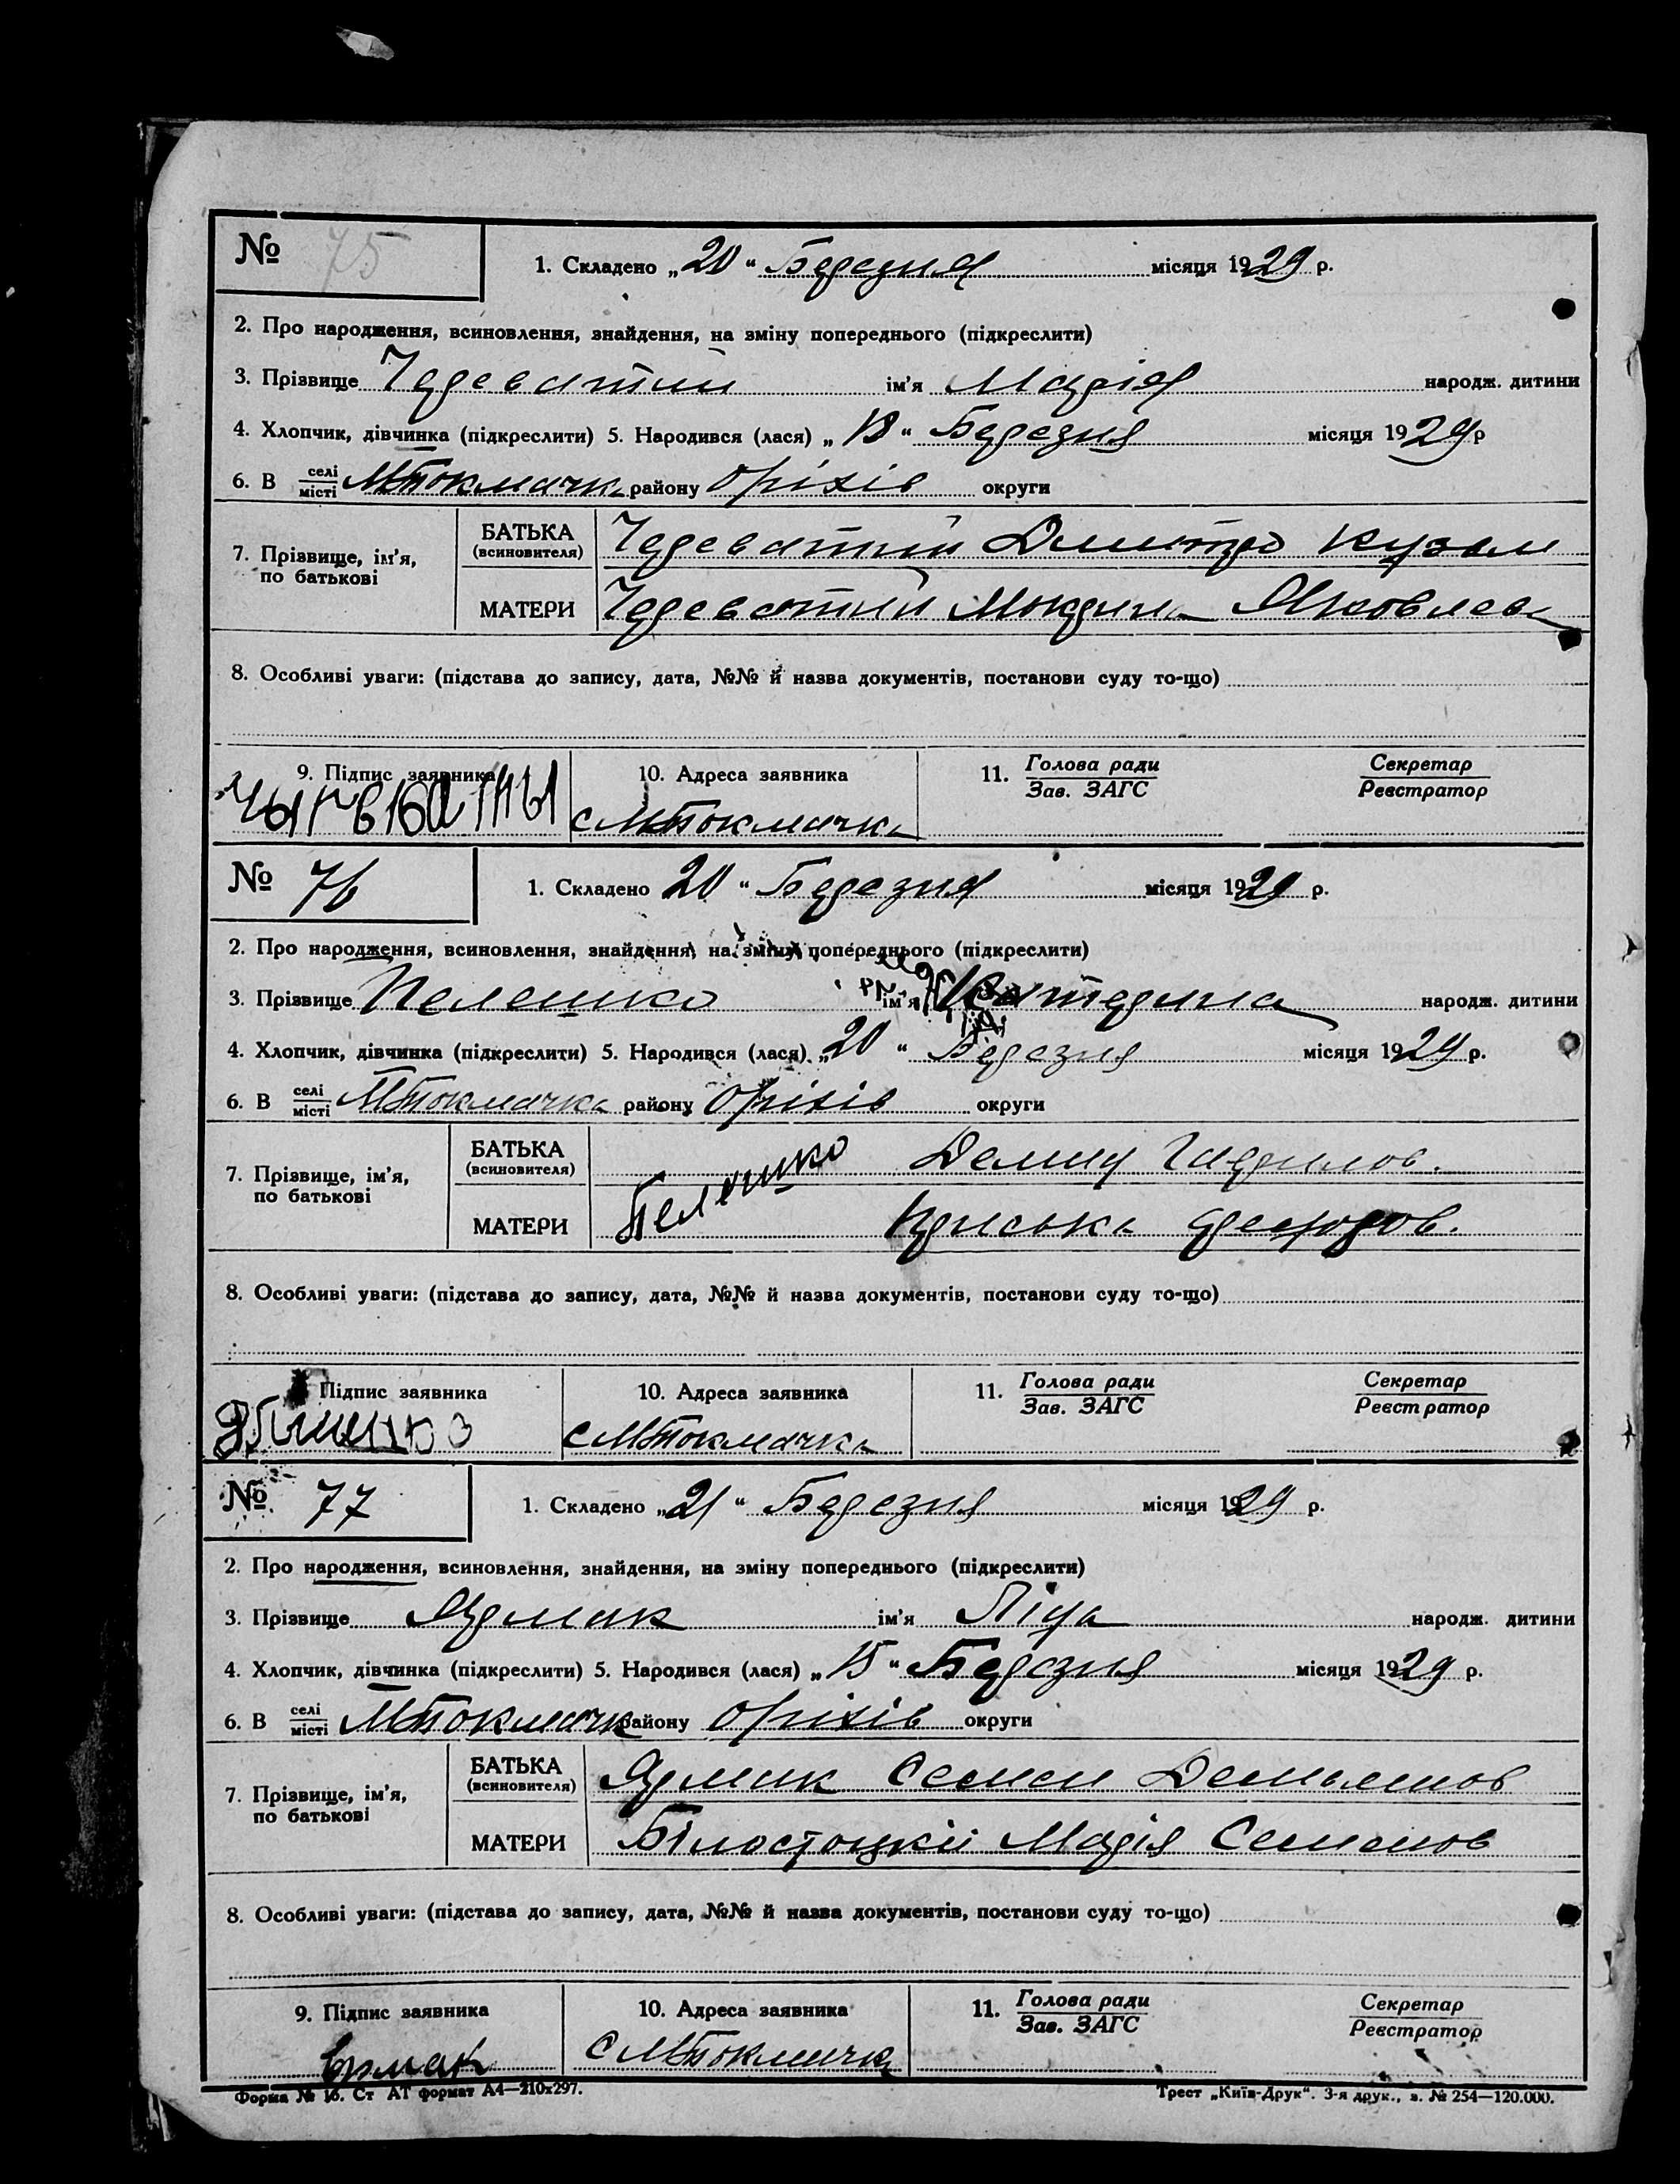 № 75 1. Складено „20“ Березня місяця 1929 р.
2. Про народження, всиновлення, знайдення, на зміну попереднього (підкреслити)
3. Прізвище Череватий ім'я Марія народж. дитини
4. Хлопчик, дівчинка (підкреслити) 5. Народився (лася) „18“ Березня місяця 1929 р
6. В селі/місті МТокмачка району Оріхів округи
7. Прізвище, ім'я, по батькові
БАТЬКА (всиновителя) Череватий Дмитро Кузьм
МАТЕРИ Череватий Мокрина Яковлева
8. Особливі уваги: (підстава до запису, дата, №№ й назва документів, постанови суду то-що)
9. Підпис заявника 10. Адреса заявника 11. Голова ради/Зав. ЗАГС Секретар/Реєстратор
с МТокмачка
№ 76 1. Складено 20 “ Березня місяця 1929 р.
2. Про народження, всиновлення, знайдення, на зміну попереднього (підкреслити)
3. Прізвище Пелешко ім'я Катерина народж. дитини
4. Хлопчик, дівчинка (підкреслити) 5. Народився (лася) „20“ Березня місяця 1929 р.
6. В селі/місті МТокмачка району Оріхів округи
7. Прізвище, ім'я, по батькові
БАТЬКА (всиновителя) Пелешко Демид Гаврилов.
МАТЕРИ Приська Федоров.
8. Особливі уваги: (підстава до запису, дата, №№ й назва документів, постанови суду то-що)
Підпис заявника 10. Адреса заявника 11. Голова ради/Зав. ЗАГС Секретар/Реєстратор
с МТокмачка
№ 77 1. Складено „21“ Березня місяця 1929 р.
2. Про народження, всиновлення, знайдення, на зміну попереднього (підкреслити)
3. Прізвище Ярмак ім'я Ліда народж. дитини
4. Хлопчик, дівчинка (підкреслити) 5. Народився (лася) „15“ Березня місяця 1929 р.
6. В селі/місті МТокмачк району Оріхів округи
7. Прізвище, ім'я, по батькові
БАТЬКА (всиновителя) Ярмак Семен Демьянов
МАТЕРИ Білостоцкій Марія Семенов
8. Особливі уваги: (підстава до запису, дата, №№ й назва документів, постанови суду то-що)
9. Підпис заявника 10. Адреса заявника 11. Голова ради/Зав. ЗАГС Секретар/Реєстратор
Ермак с МТокмачка
Форма № 16. Ст АТ формат А4—210x297. Трест „Київ-Друк“. 3-я друк., з. № 254—120.000.